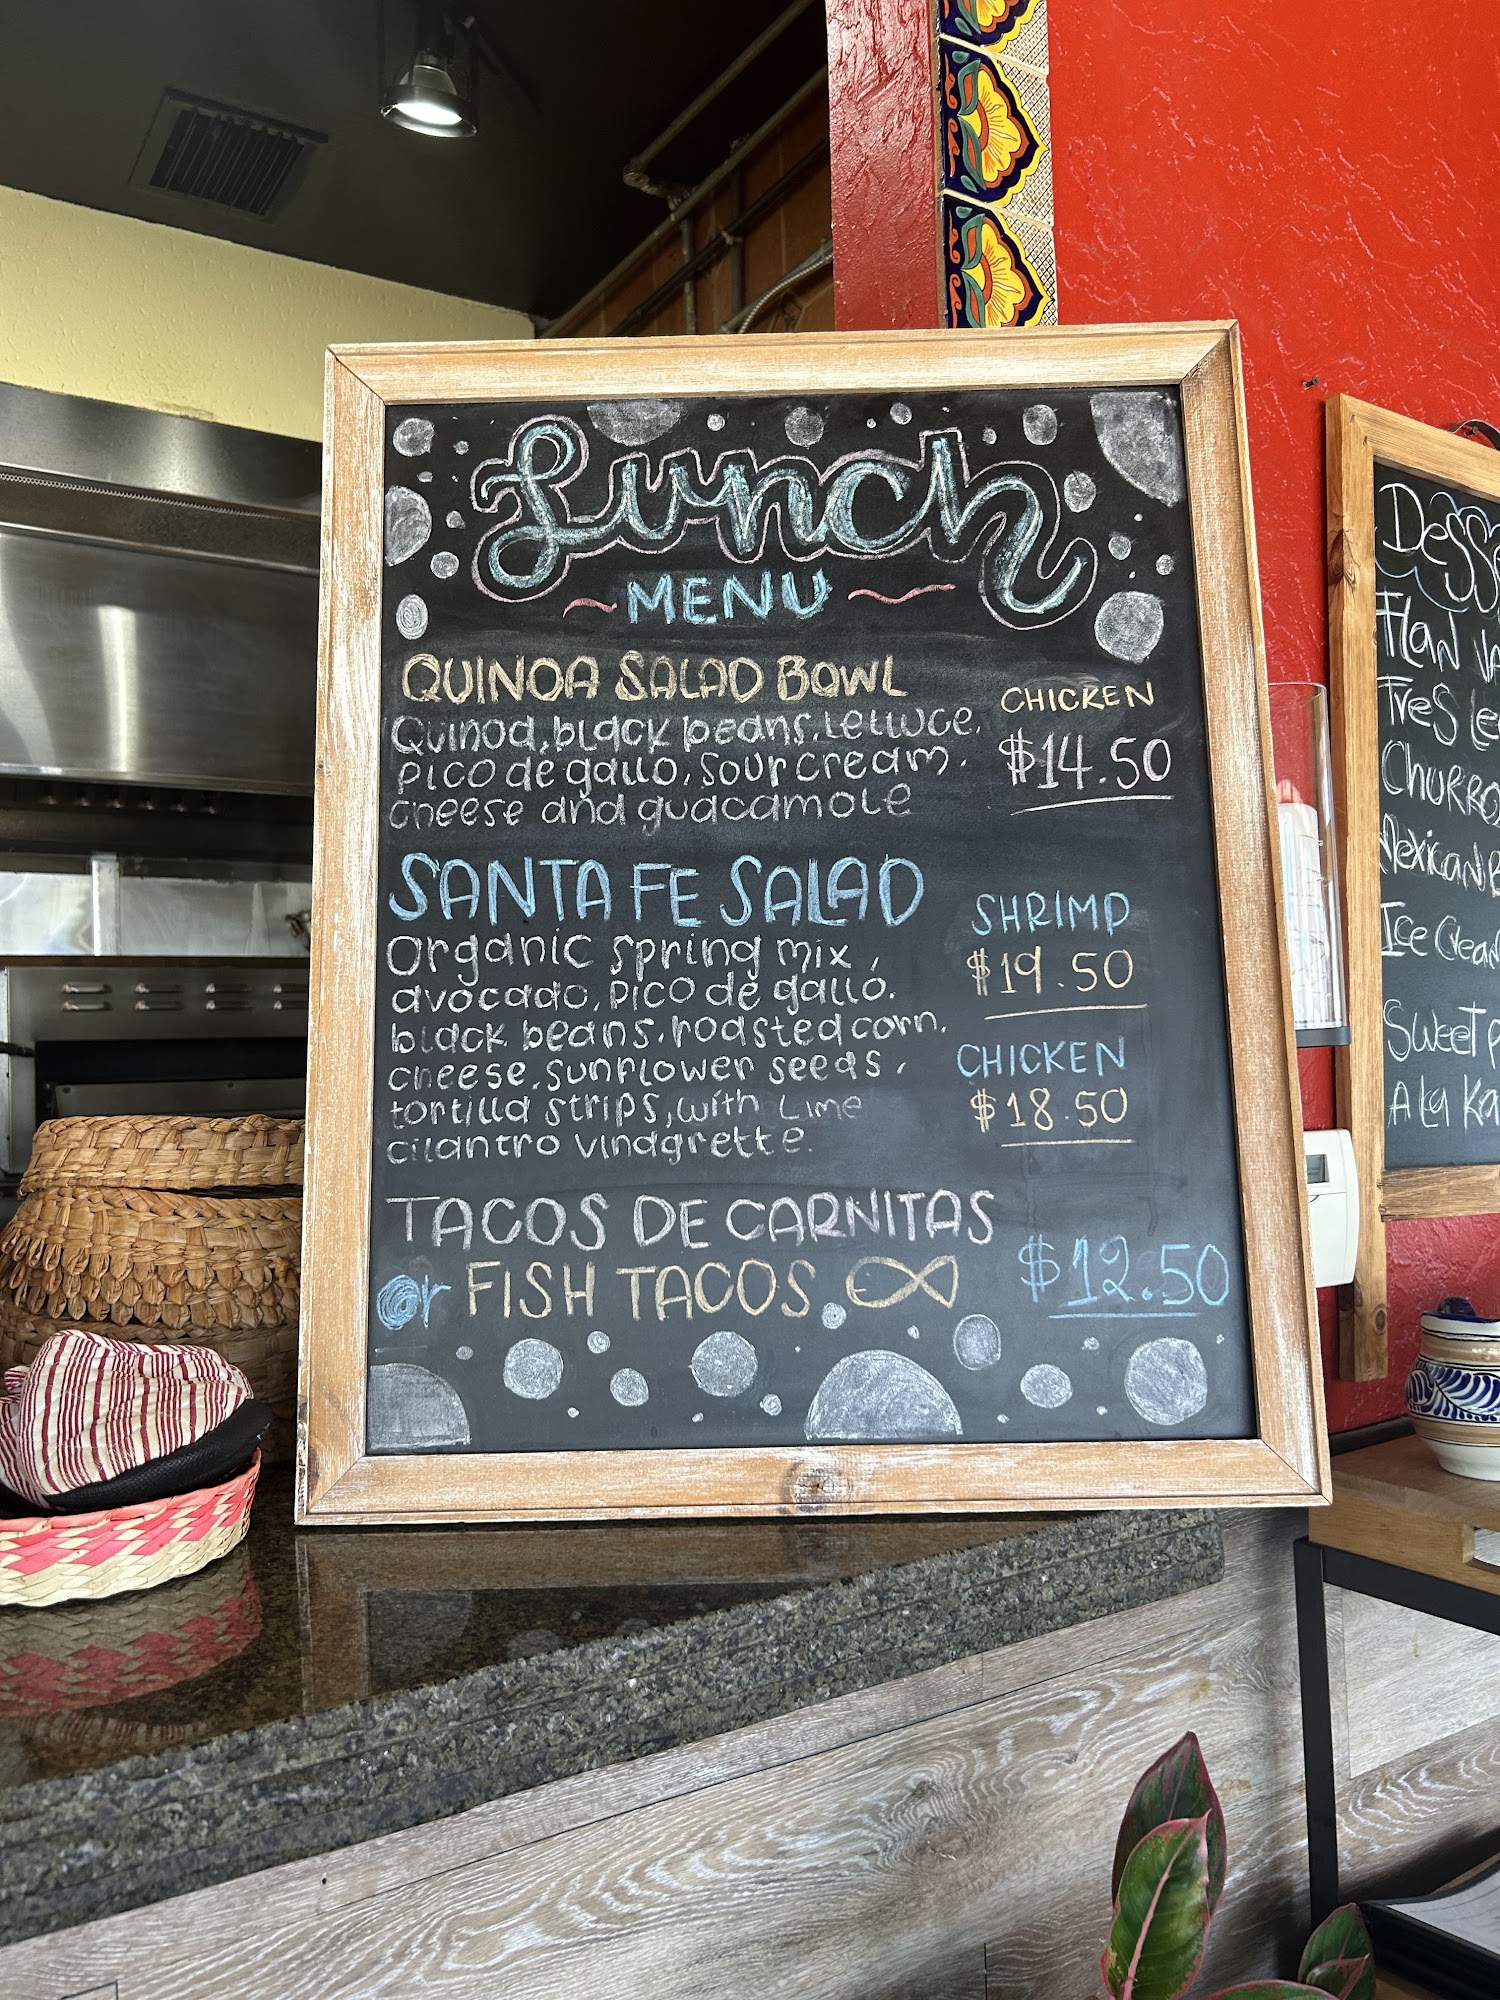 Lunch
~MENU~
QUINOA SALAD BOWL
Quinoa, black beans, lettuce,
pico de gallo, sour cream,
cheese and guacamole
CHICKEN
$14.50
SANTA FE SALAD
Organic spring mix,
avocado, pico de gallo.
black beans, roasted corn,
cheese, sunflower seeds,
tortilla strips, with lime
cilantro vinagrette.
SHRIMP
$19.50
CHICKEN
$18.50
TACOS DE CARNITAS
or FISH TACOS
$12.50
Flan
Tres
Churros
Mexican
Ice
Sweet
A La